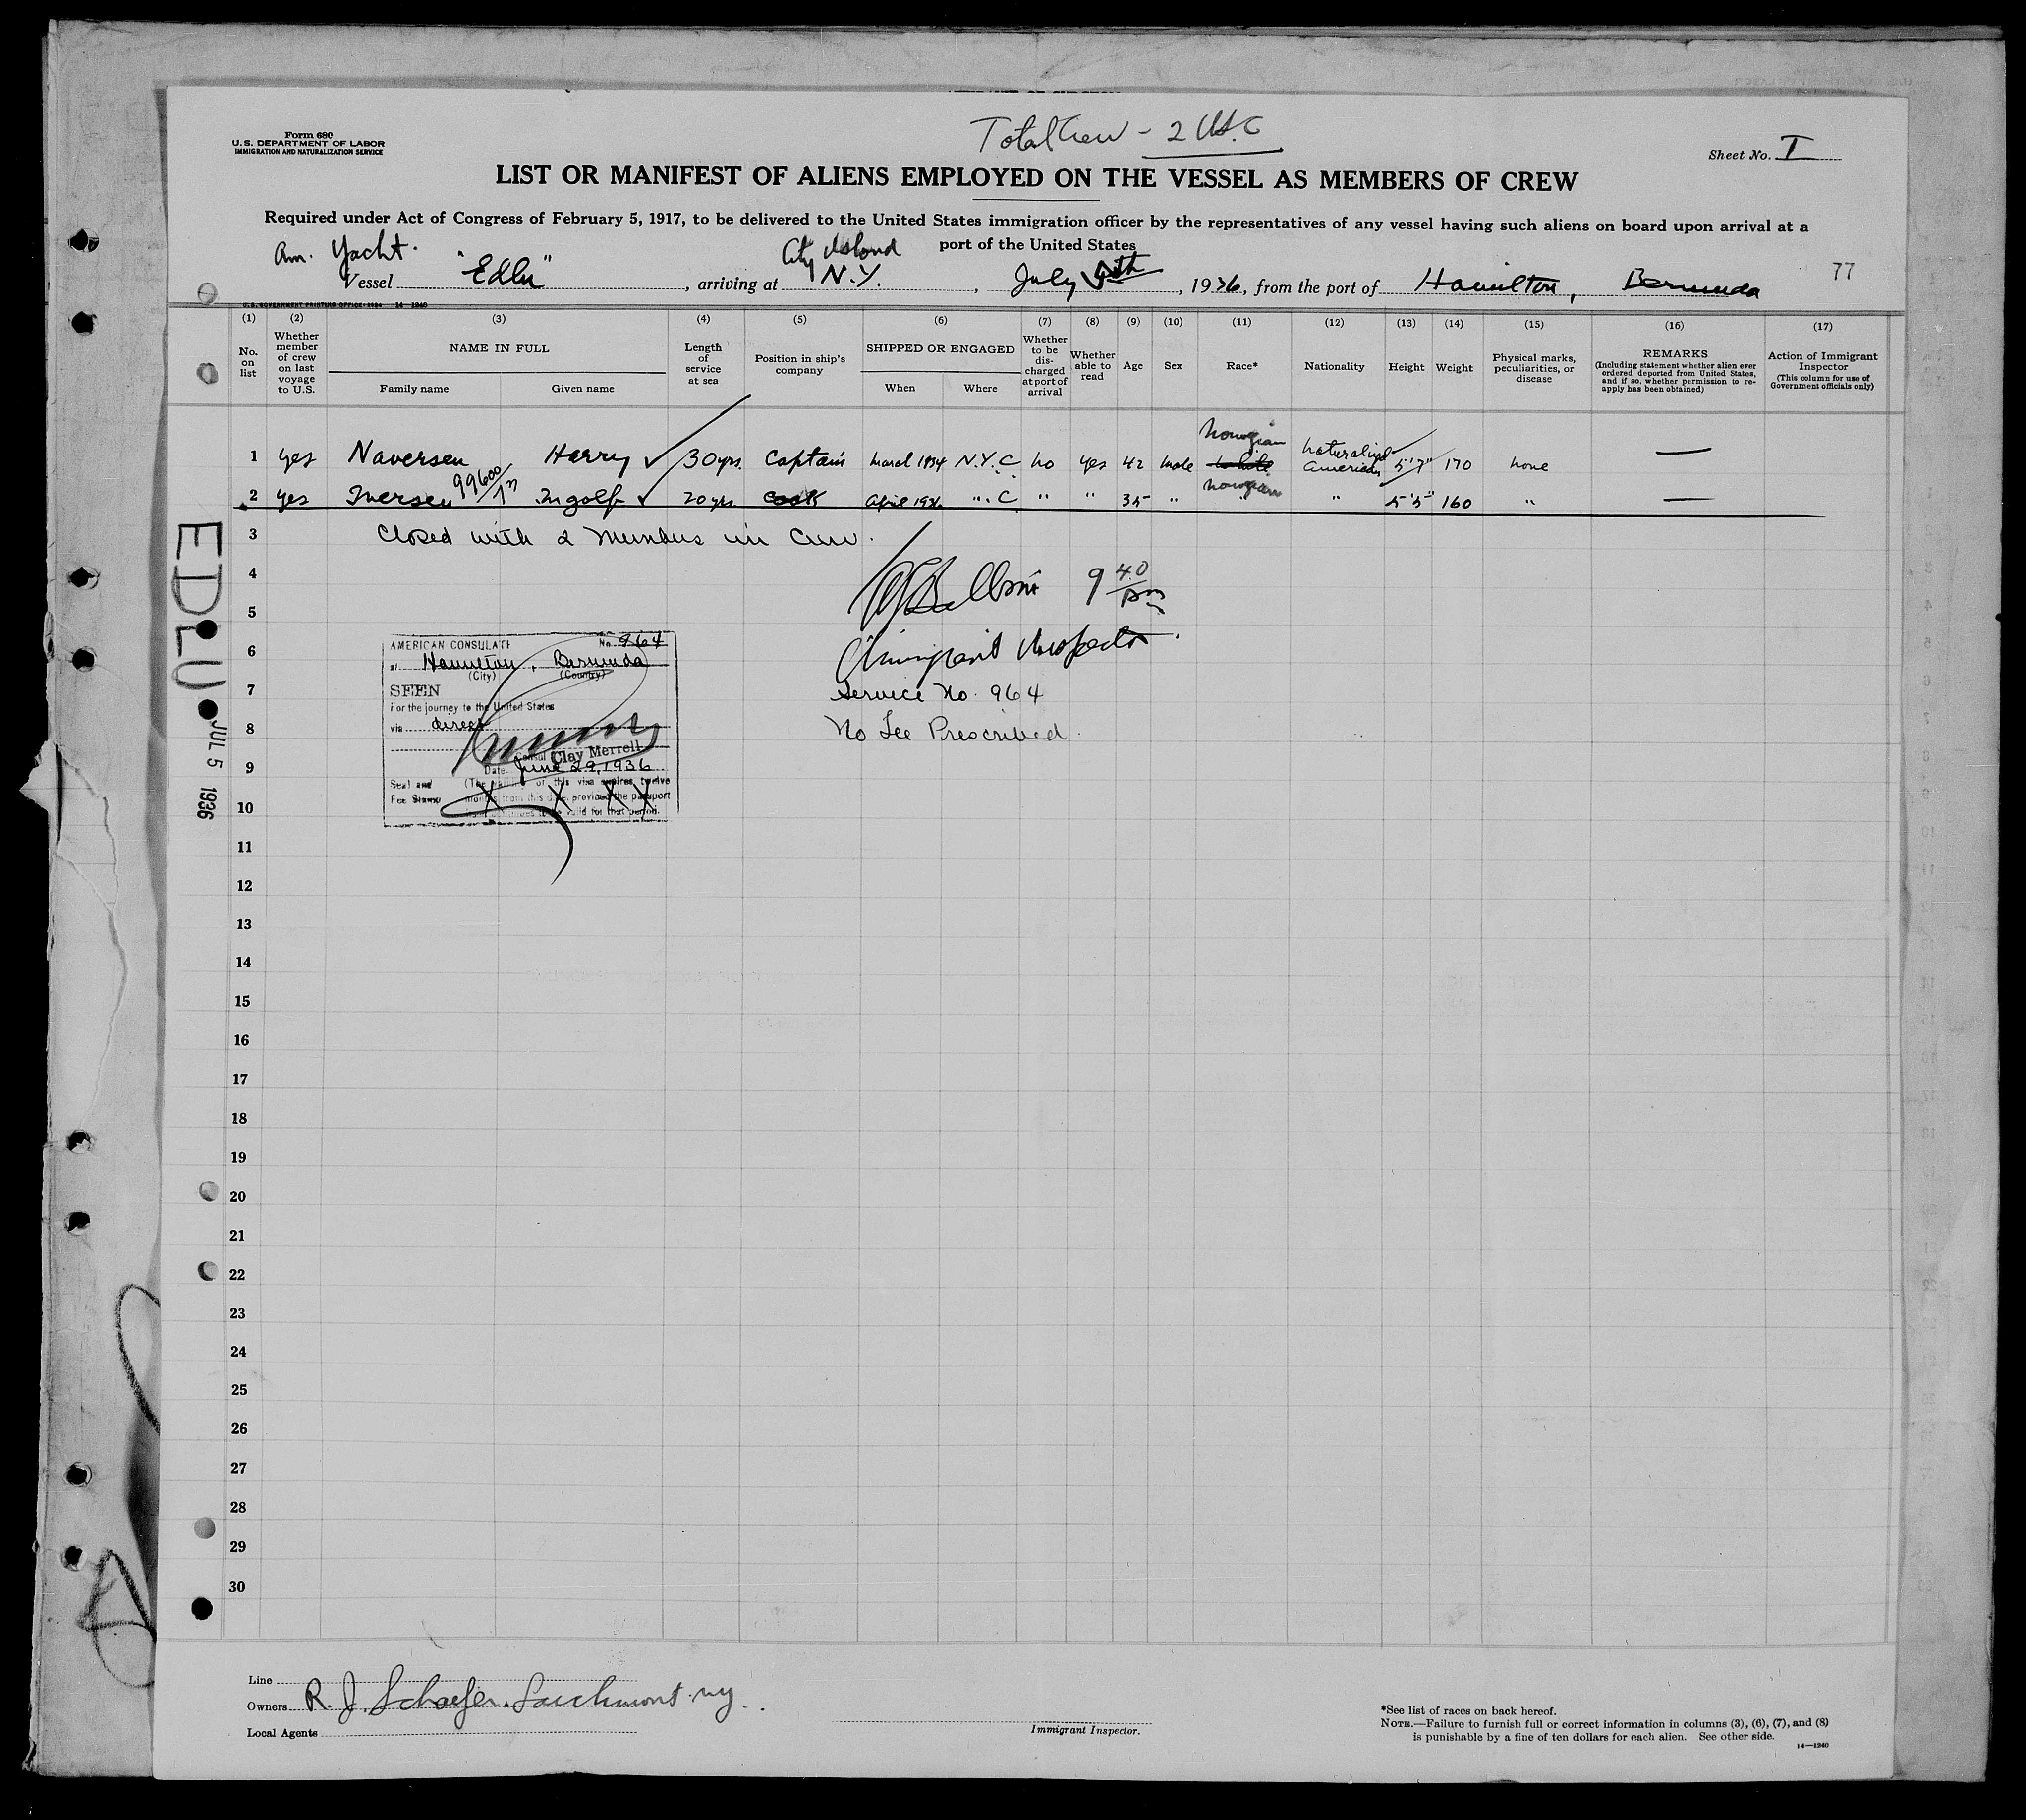 Total Crew - 2 U.S.C
Form 680
U.S. DEPARTMENT OF LABOR
IMMIGRATION AND NATURALIZATION SERVICE
Sheet No. I
LIST OR MANIFEST OF ALIENS EMPLOYED ON THE VESSEL AS MEMBERS OF CREW
Required under Act of Congress of February 5, 1917, to be delivered to the United States immigration officer by the representatives of any vessel having such aliens on board upon arrival at a
port of the United States
Am. Yacht. City Island
Vessel "Edlu", arriving at N.Y., July 5th, 1936, from the port of Hamilton, Bermuda
77
U.S. GOVERNMENT PRINTING OFFICE: 1934 14-1240
(1) (2) (3) (4) (5) (6) (7) (8) (9) (10) (11) (12) (13) (14) (15) (16) (17)
No. on list
Whether member of crew on last voyage to U.S.
NAME IN FULL
Family name Given name
Length of service at sea
Position in ship's company
SHIPPED OR ENGAGED
When Where
Whether to be discharged at port of arrival
Whether able to read
Age
Sex
Race*
Nationality
Height
Weight
Physical marks, peculiarities, or disease
REMARKS
(Including statement whether alien ever ordered deported from United States, and if so, whether permission to reapply has been obtained)
Action of Immigrant Inspector
(This column for use of Government officials only)
1 yes Naversen Harry 30 yrs. Captain March 1934 N.Y.C no yes 42 male Norwegian naturalized American 5'7" 170 none —
99600/
2 yes Iversen Ingolf 20 yrs. Cook April 1936 " . C " " 35 " Norwegian " 5'5" 160 " —
3 Closed with 2 Members in Crew.
4
9 40 pm
5
Immigrant Inspector
6
7 Service No. 964
8 No Fee Prescribed.
9
10
11
12
13
14
15
16
17
18
19
20
21
22
23
24
25
26
27
28
29
30
AMERICAN CONSULATE No. 964
at Hamilton, Bermuda
(City) (Country)
SEEN
For the journey to the United States
via direct
Consul Clay Merrell
Date June 29, 1936
Seal and
Fee Stamp
(The validity of this visa expires twelve
months from this date, provided the passport
valid for that period.
X X X X
EDLU
JUL 5 1936
Line
Owners R. J. Schaefer. Larchmont. NY.
Local Agents
Immigrant Inspector.
*See list of races on back hereof.
NOTE.—Failure to furnish full or correct information in columns (3), (6), (7), and (8)
is punishable by a fine of ten dollars for each alien. See other side.
14-1240